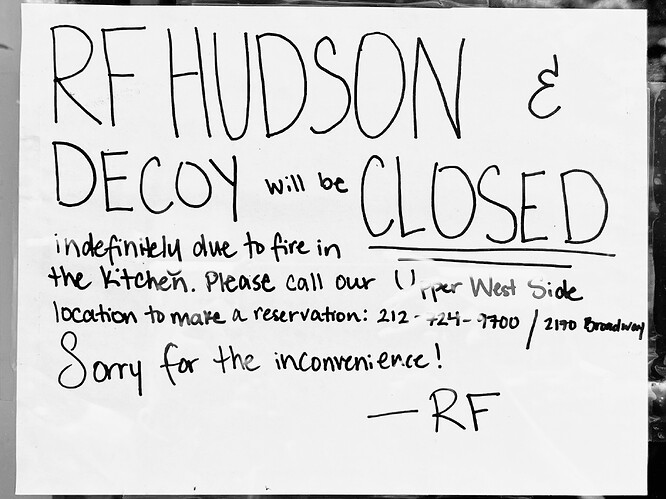 RF HUDSON &
DECOY will be CLOSED
indefinitely due to fire in
the kitchen. Please call our Upper West Side
location to make a reservation: 212- 724- 9700 / 2190 Broadway
Sorry for the inconvenience!
— RF